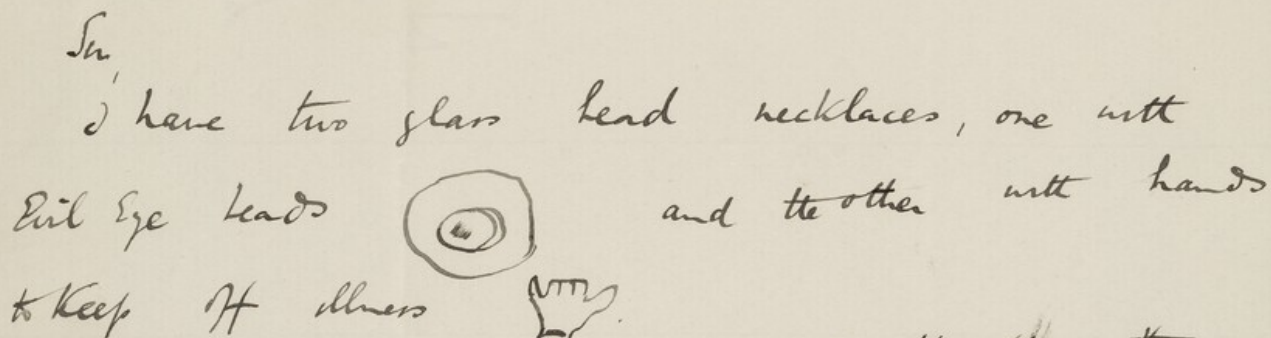 Sir,
I have two glass bead necklaces, one with
Evil Eye beads and the other with hands
to Keep off illness